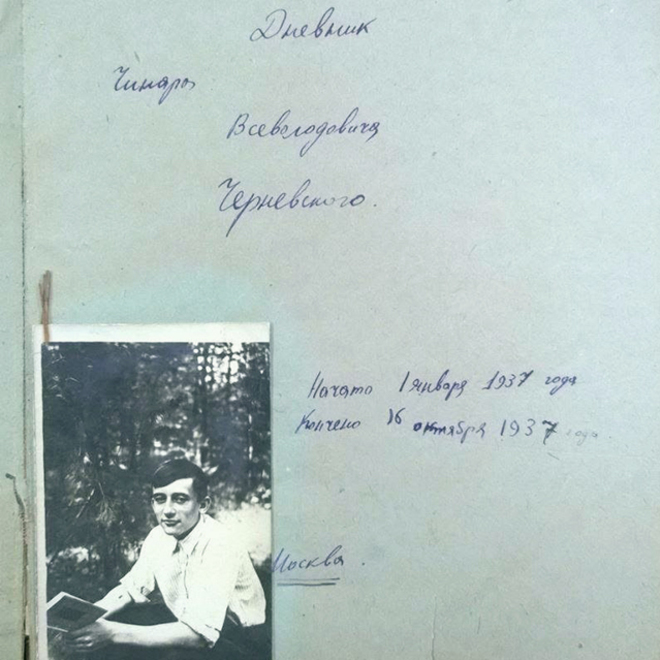 Дневник
Чинара
Всеволодовича
Черневского.
Начато 1 января 1937 года
Кончено 16 октября 1937 года
Москва.